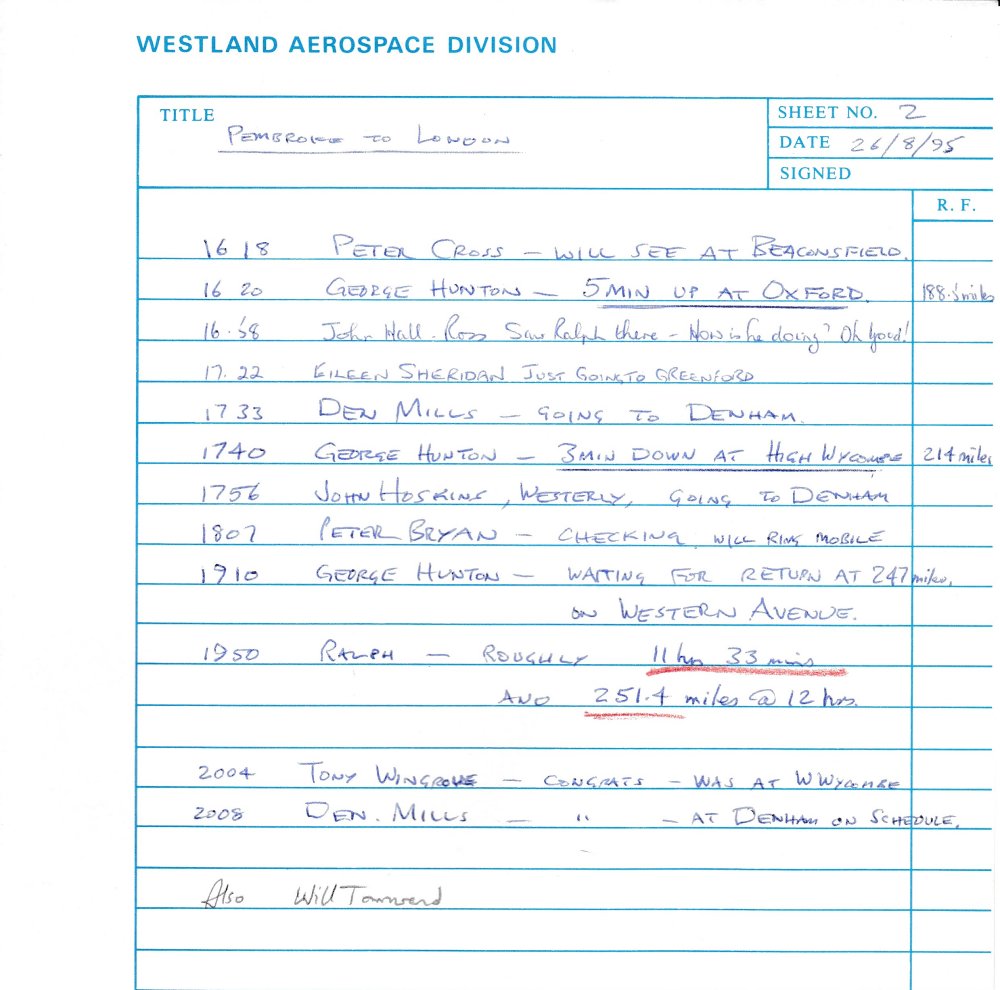 WESTLAND AEROSPACE DIVISION
TITLE
PEMBROKE TO LONDON
SHEET NO. 2
DATE 26/8/95
SIGNED
R. F.
16 18 PETER CROSS – WILL SEE AT BEACONSFIELD.
16 20 GEORGE HUNTON – 5 MIN UP AT OXFORD. 188.5 miles
16.58 John Hall. Ross Saw Ralph there – How is he doing? Oh Good!
17.22 EILEEN SHERIDAN JUST GOING TO GREENFORD
17 33 DEN MILLS – GOING TO DENHAM.
1740 GEORGE HUNTON – 3 MIN DOWN AT HIGH WYCOMBE 214 miles
1756 JOHN HOSKINS, WESTERLY, GOING TO DENHAM
1807 PETER BRYAN – CHECKING, WILL RING MOBILE
1910 GEORGE HUNTON – WAITING FOR RETURN AT 247 miles,
ON WESTERN AVENUE.
1950 RALPH – ROUGHLY 11 hrs 33 mins
AND 251.4 miles @ 12 hrs.
2004 TONY WINGROVE – CONGRATS – WAS AT W WYCOMBE
2008 DEN. MILLS – " – AT DENHAM ON SCHEDULE.
Also Will Townsend